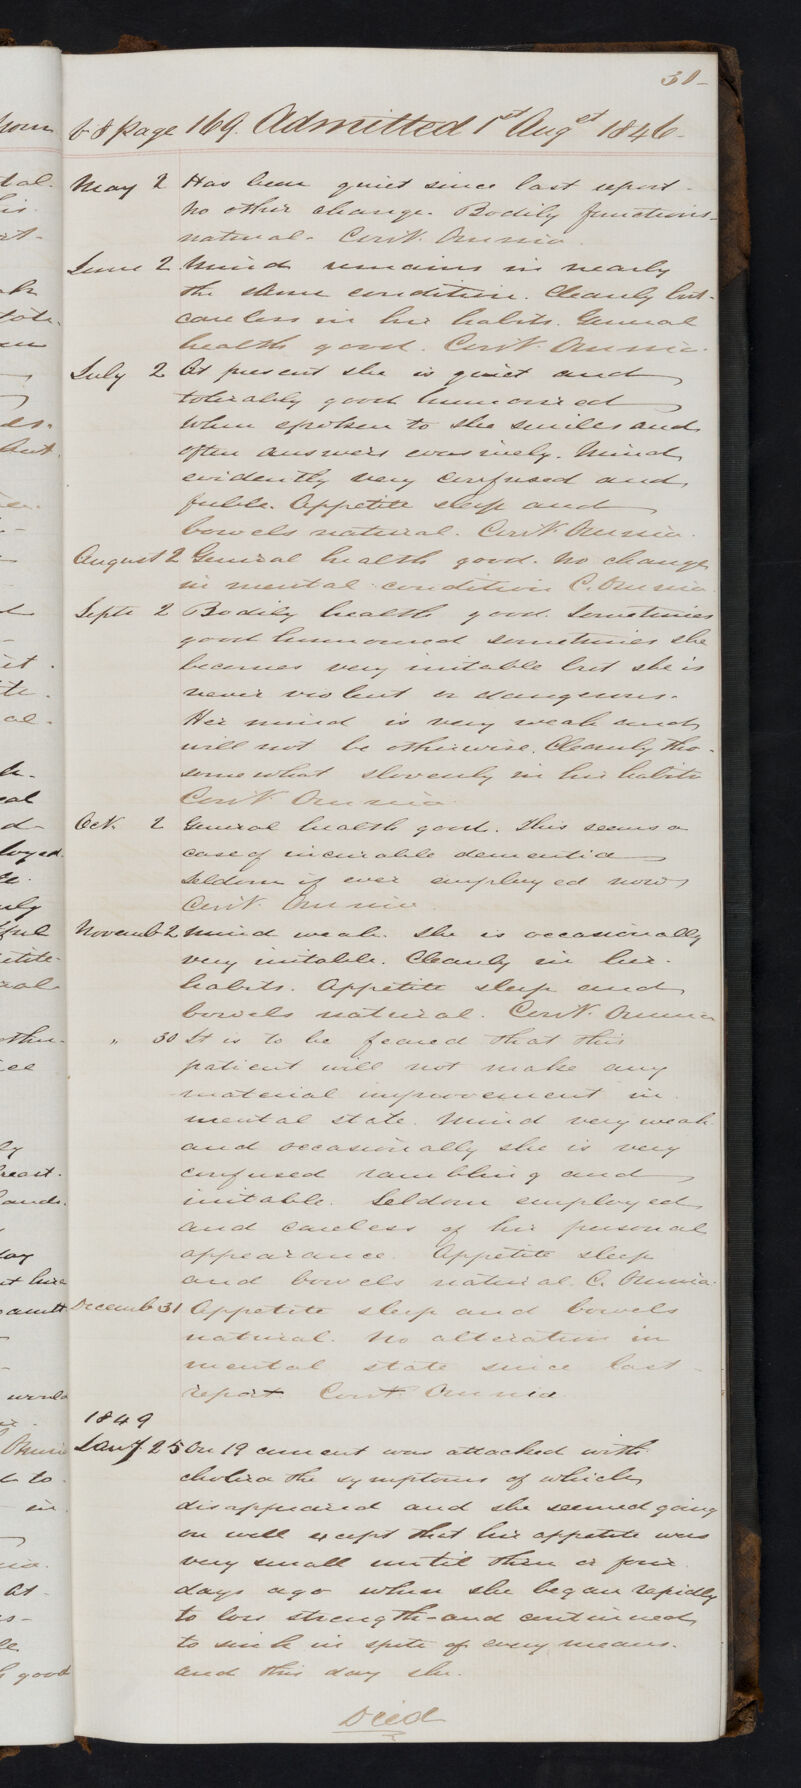 30-
v 8 page 169. Admitted 1st Augst 1846-
May 2 Has been quiet since last report-
no other change. Bodily functions-
natural. Cont. Omnia.
June 2 Mind remains in nearly
the same condition. Cleanly but-
careless in her habits. General
health good. Cont. Omnia.
July 2 At present she is quiet and
tolerably good humoured
when spoken to she smiles and
often answers evasively. Mind
evidently very confused and
feeble. Appetite sleep and
bowels natural. Cont. Omnia.
August 2 General health good. No change
in mental condition C. Omnia.
Septr 2 Bodily health good. Sometimes
good humoured sometimes she
becomes very irritable but she is
never violent or dangerous.
Her mind is very weak and
will not be otherwise. Cleanly tho-
somewhat slovenly in her habits
Cont. Omnia
Oct. 2 General health good. This seems a
case of incurable dementia
Seldom if ever employed now
Cont. Omnia.
Novemb 2 Mind weak. She is occasionally
very irritable. Cleanly in her-
habits. Appetite sleep and
bowels natural. Cont. Omnia
" 30 It is to be feared that this
patient will not make any
material improvement in
mental state. Mind very weak
and occasionally she is very
confused rambling and
irritable. Seldom employed
and careless of her personal
appearance. Appetite sleep
and bowels natural. C. Omnia.
Decemb 31 Appetite sleep and bowels
natural. No alteration in
mental state since last-
report. Cont. Omnia
1849
Jany. 25 On 19 current was attacked with
cholera the symptoms of which
disappeared and she seemed going
on well except that her appetite was
very small until three or four
days ago when she began rapidly
to lose strength-and continued
to sink in spite of every means.
and this day she.
Died